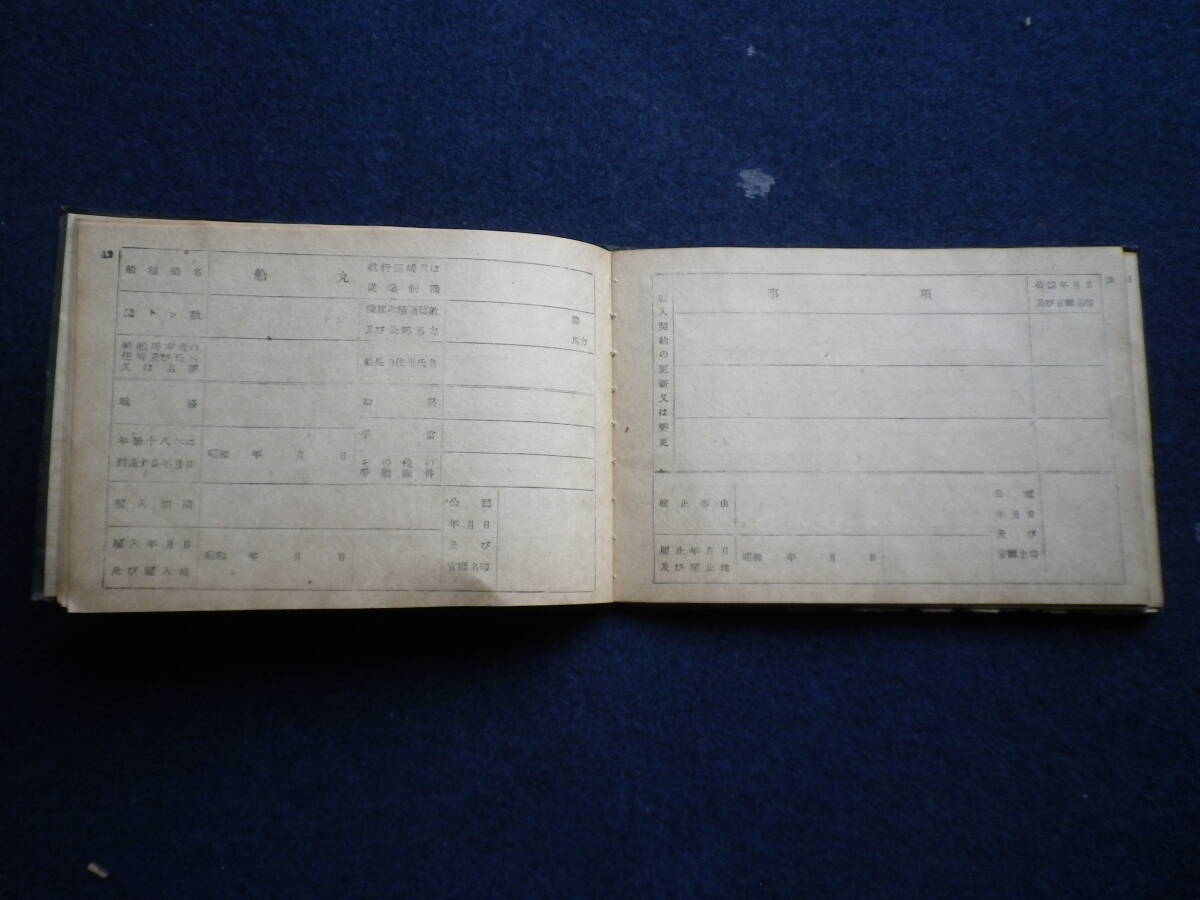 船種船名
船 丸
航行区域又は
従業制限
総トン数
トン
及び公称馬力
馬力
船舶所有者の
住所及び氏名
又は名称
船長の住所氏名
職務
給料
年齢十八年に
到達する年月日
昭和 年 月 日
手当
その他の
労働条件
雇入期間
公認
年月日
及び
官庁名印
雇入年月日
及び雇入地
昭和 年 月 日
事項
公認年月日
及び官庁名印
雇入契約の更新又は変更
雇止事由
公認
年月日
及び
官庁名印
雇止年月日
及び雇止地
昭和 年 月 日